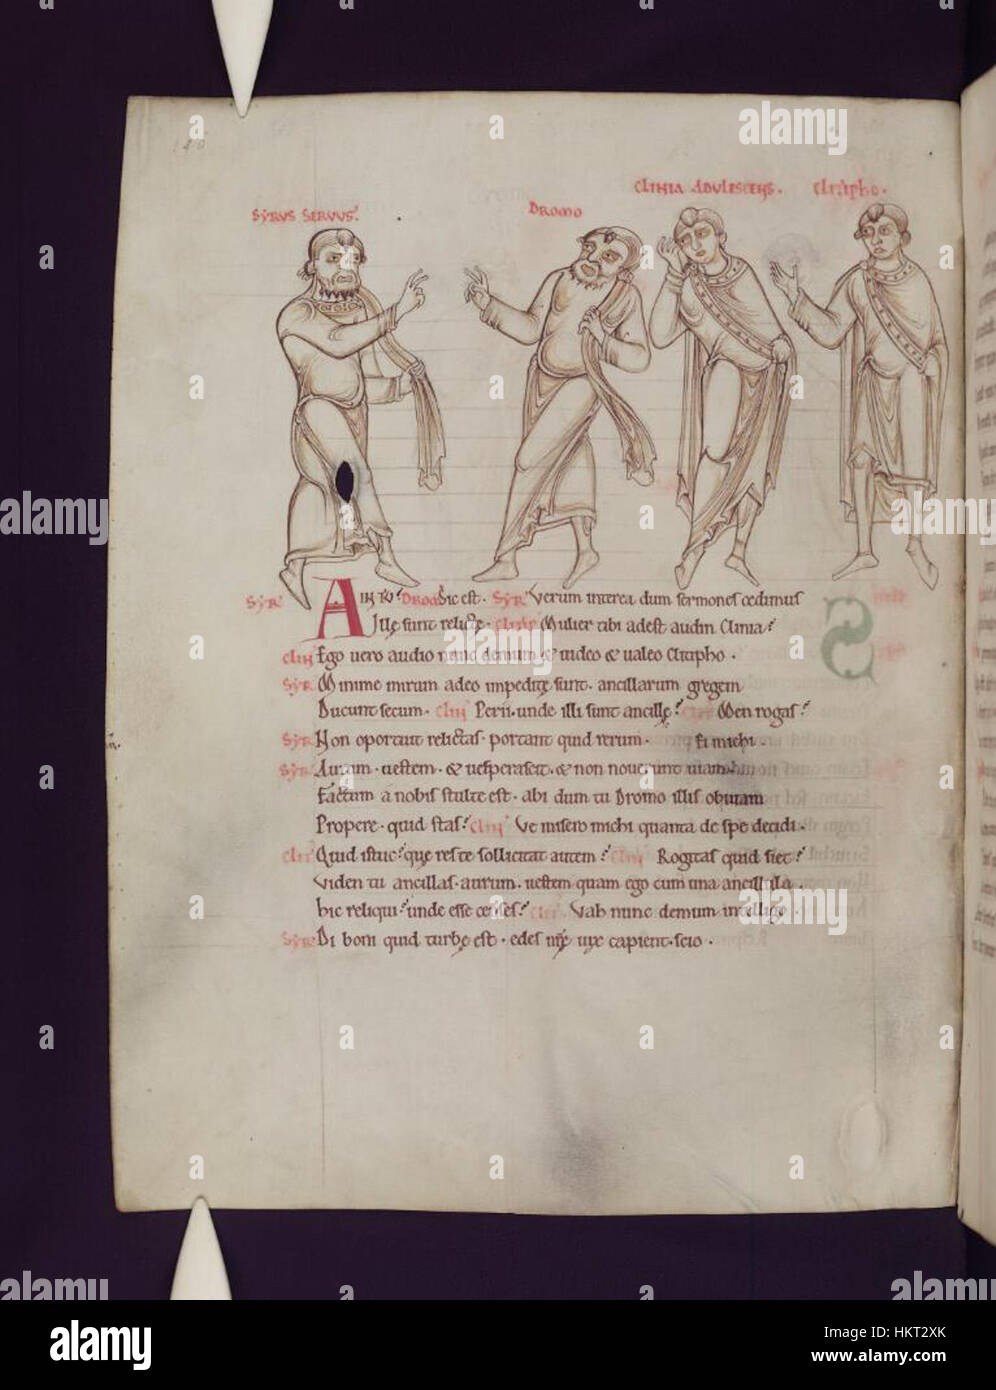 CLINIA ADULESCENS. Clitipho.
SYRUS SERVUS.
DROMO
Syr' AIN tu? Dromo Sic est. Syr' Verum interea dum sermones cedimus
Illę sunt relictę. Clitip Mulier tibi adest audin Clinia?
Clin Ego vero audio nunc demum & video & valeo Clitipho.
Syr Minime mirum adeo impeditę sunt. ancillarum gregem
Ducunt secum. Clin Perii. unde illi sunt ancillę? Men rogas?
Syr Non oportuit relictas. portant quid rerum. Ei michi.
Syr Aurum. vestem. & vesperascit. & non noverunt viam
Factum a nobis stulte est. abi dum tu Dromo illis obviam
Propere. quid stas? Clin Ve misero michi quanta de spe decidi.
Clit Quid istuc? quę res te sollicitat autem? Clin Rogitas quid siet?
Viden tu ancillas. aurum. vestem quam ego cum una ancillula.
hic reliqui? unde esse censes? Clit Vah nunc demum intelligo.
Syr Di boni quid turbę est. edes nrę vix capient. scio.
S
a
alamy
alamy
Image ID: HKT2XK
www.alamy.com